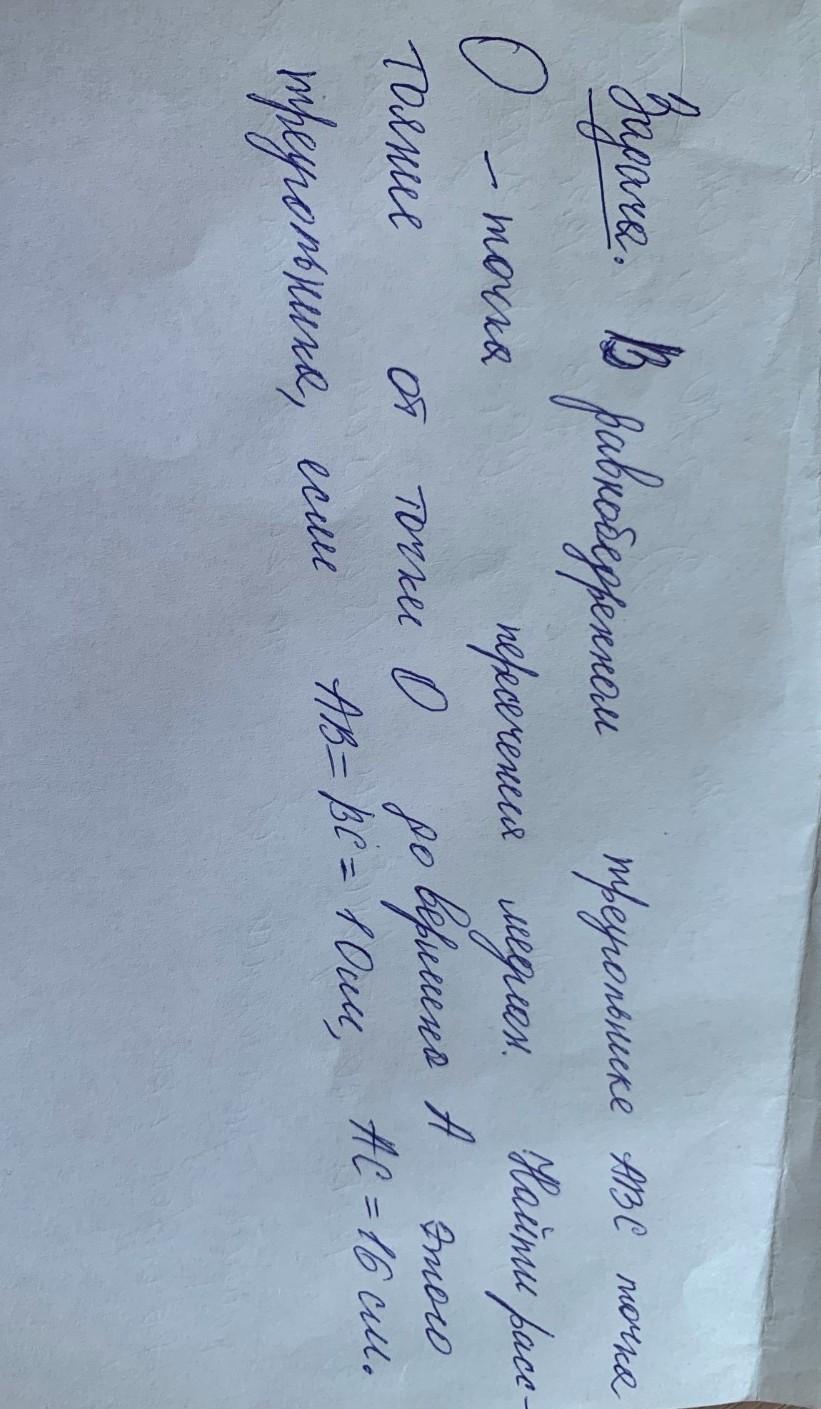 Задача. В равнобедренном треугольнике ABC точка
O - точка пересечения медиан. Найти расс-
тояние от точки O до вершины A этого
треугольника, если AB = BC = 10 см, AC = 16 см.